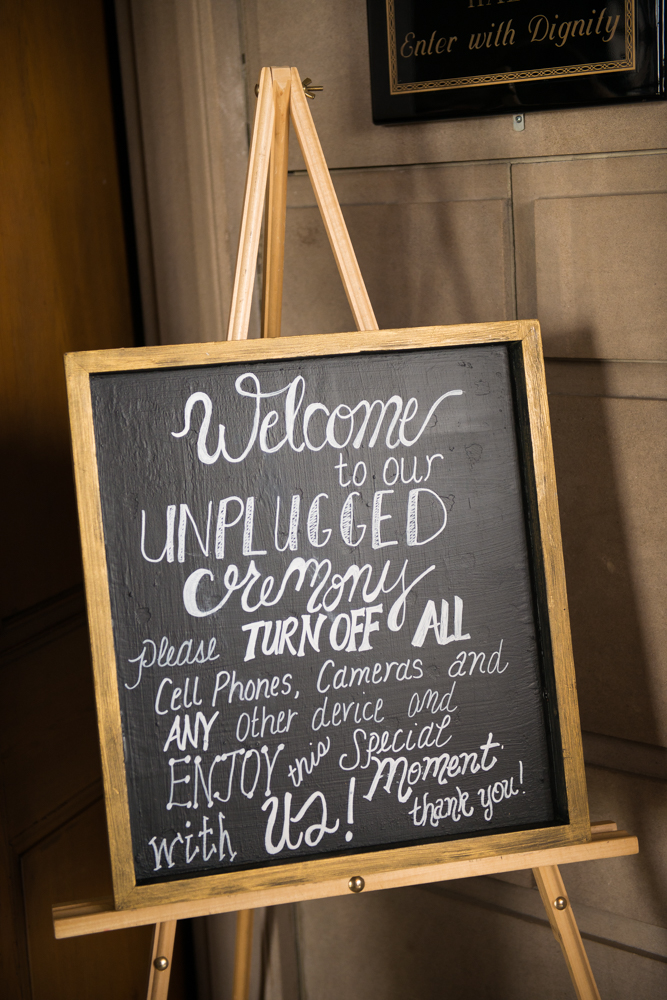 Enter with Dignity
Welcome
to our
UNPLUGGED
Ceremony
please TURN OFF ALL
Cell Phones, Cameras and
ANY other device and
ENJOY this Special Moment
with US! thank you!